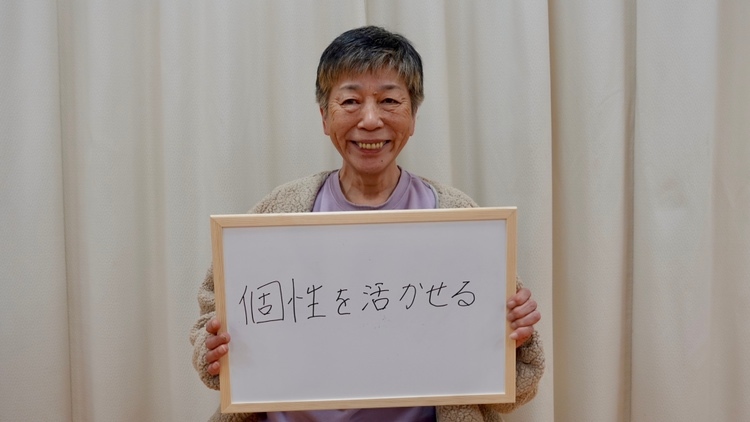 個性を活かせる